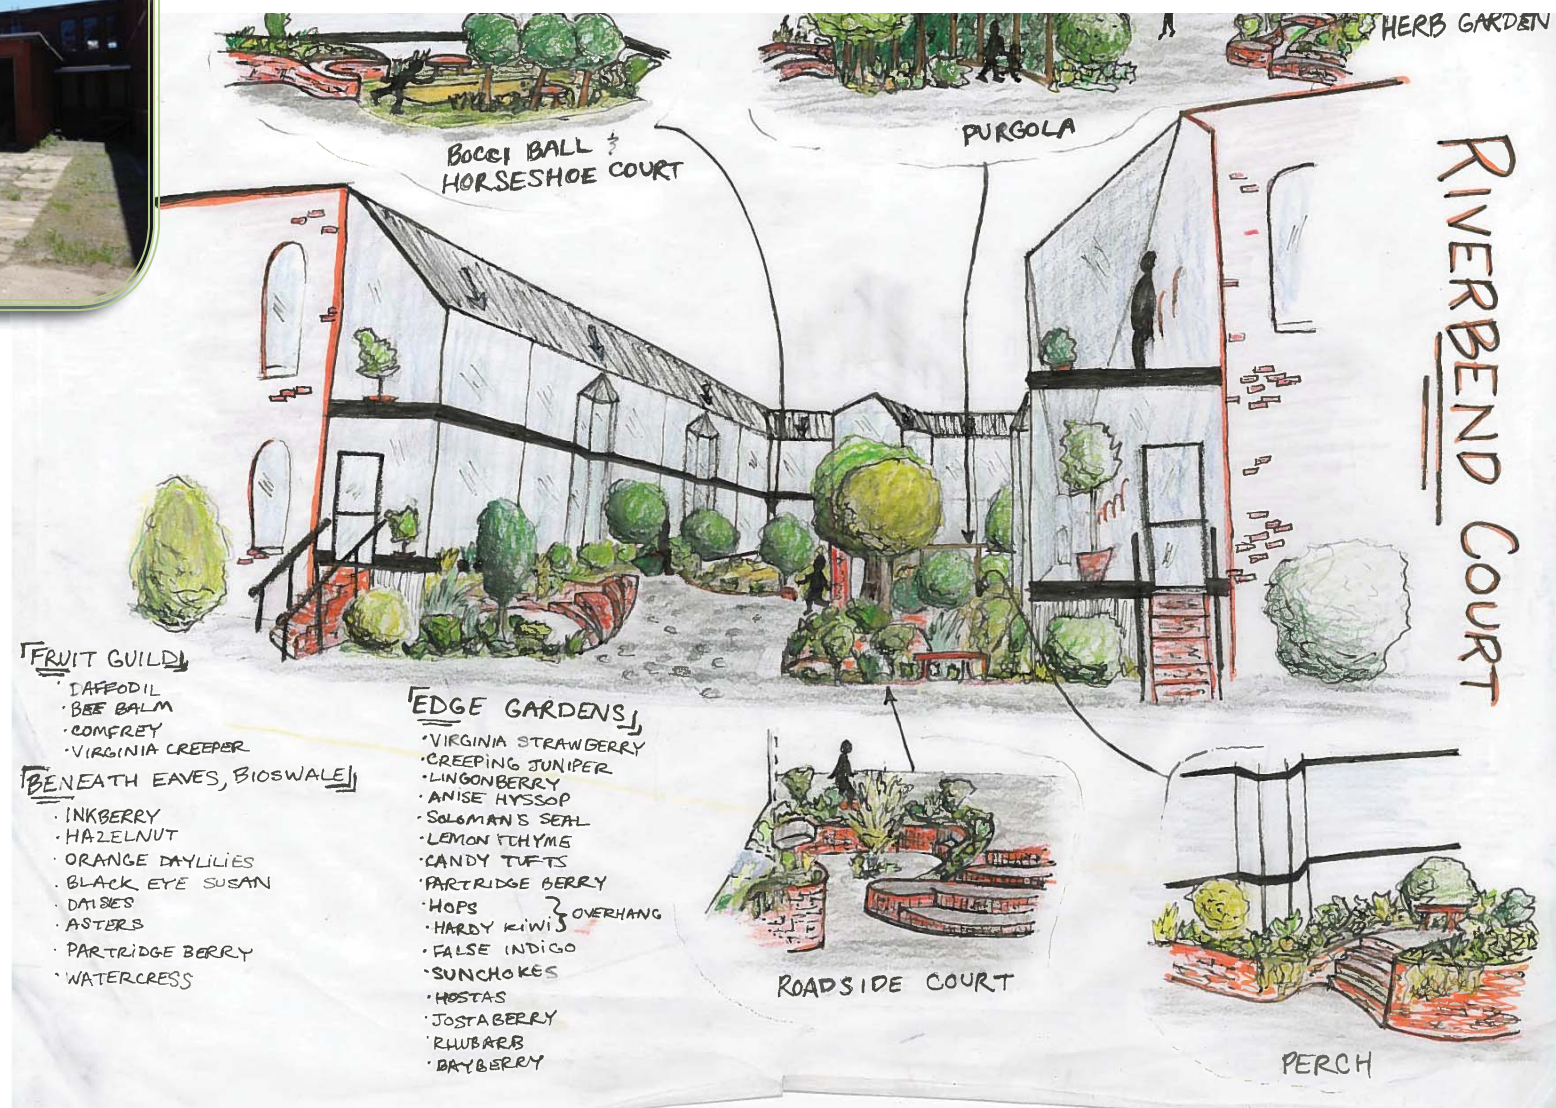 HERB GARDEN
BOCCI BALL &
HORSESHOE COURT
PURGOLA
RIVERBEND COURT
FRUIT GUILD
· DAFFODIL
· BEE BALM
· COMFREY
· VIRGINIA CREEPER
BENEATH EAVES, BIOSWALE
· INKBERRY
· HAZELNUT
· ORANGE DAYLILIES
· BLACK EYE SUSAN
· DAISIES
· ASTERS
· PARTRIDGE BERRY
· WATERCRESS
EDGE GARDENS
· VIRGINIA STRAWBERRY
· CREEPING JUNIPER
· LINGONBERRY
· ANISE HYSSOP
· SOLOMAN'S SEAL
· LEMON THYME
· CANDY TUFTS
· PARTRIDGE BERRY
· HOPS
· HARDY KIWI } OVERHANG
· FALSE INDIGO
· SUNCHOKES
· HOSTAS
· JOSTABERRY
· RHUBARB
· BAYBERRY
ROADSIDE COURT
PERCH